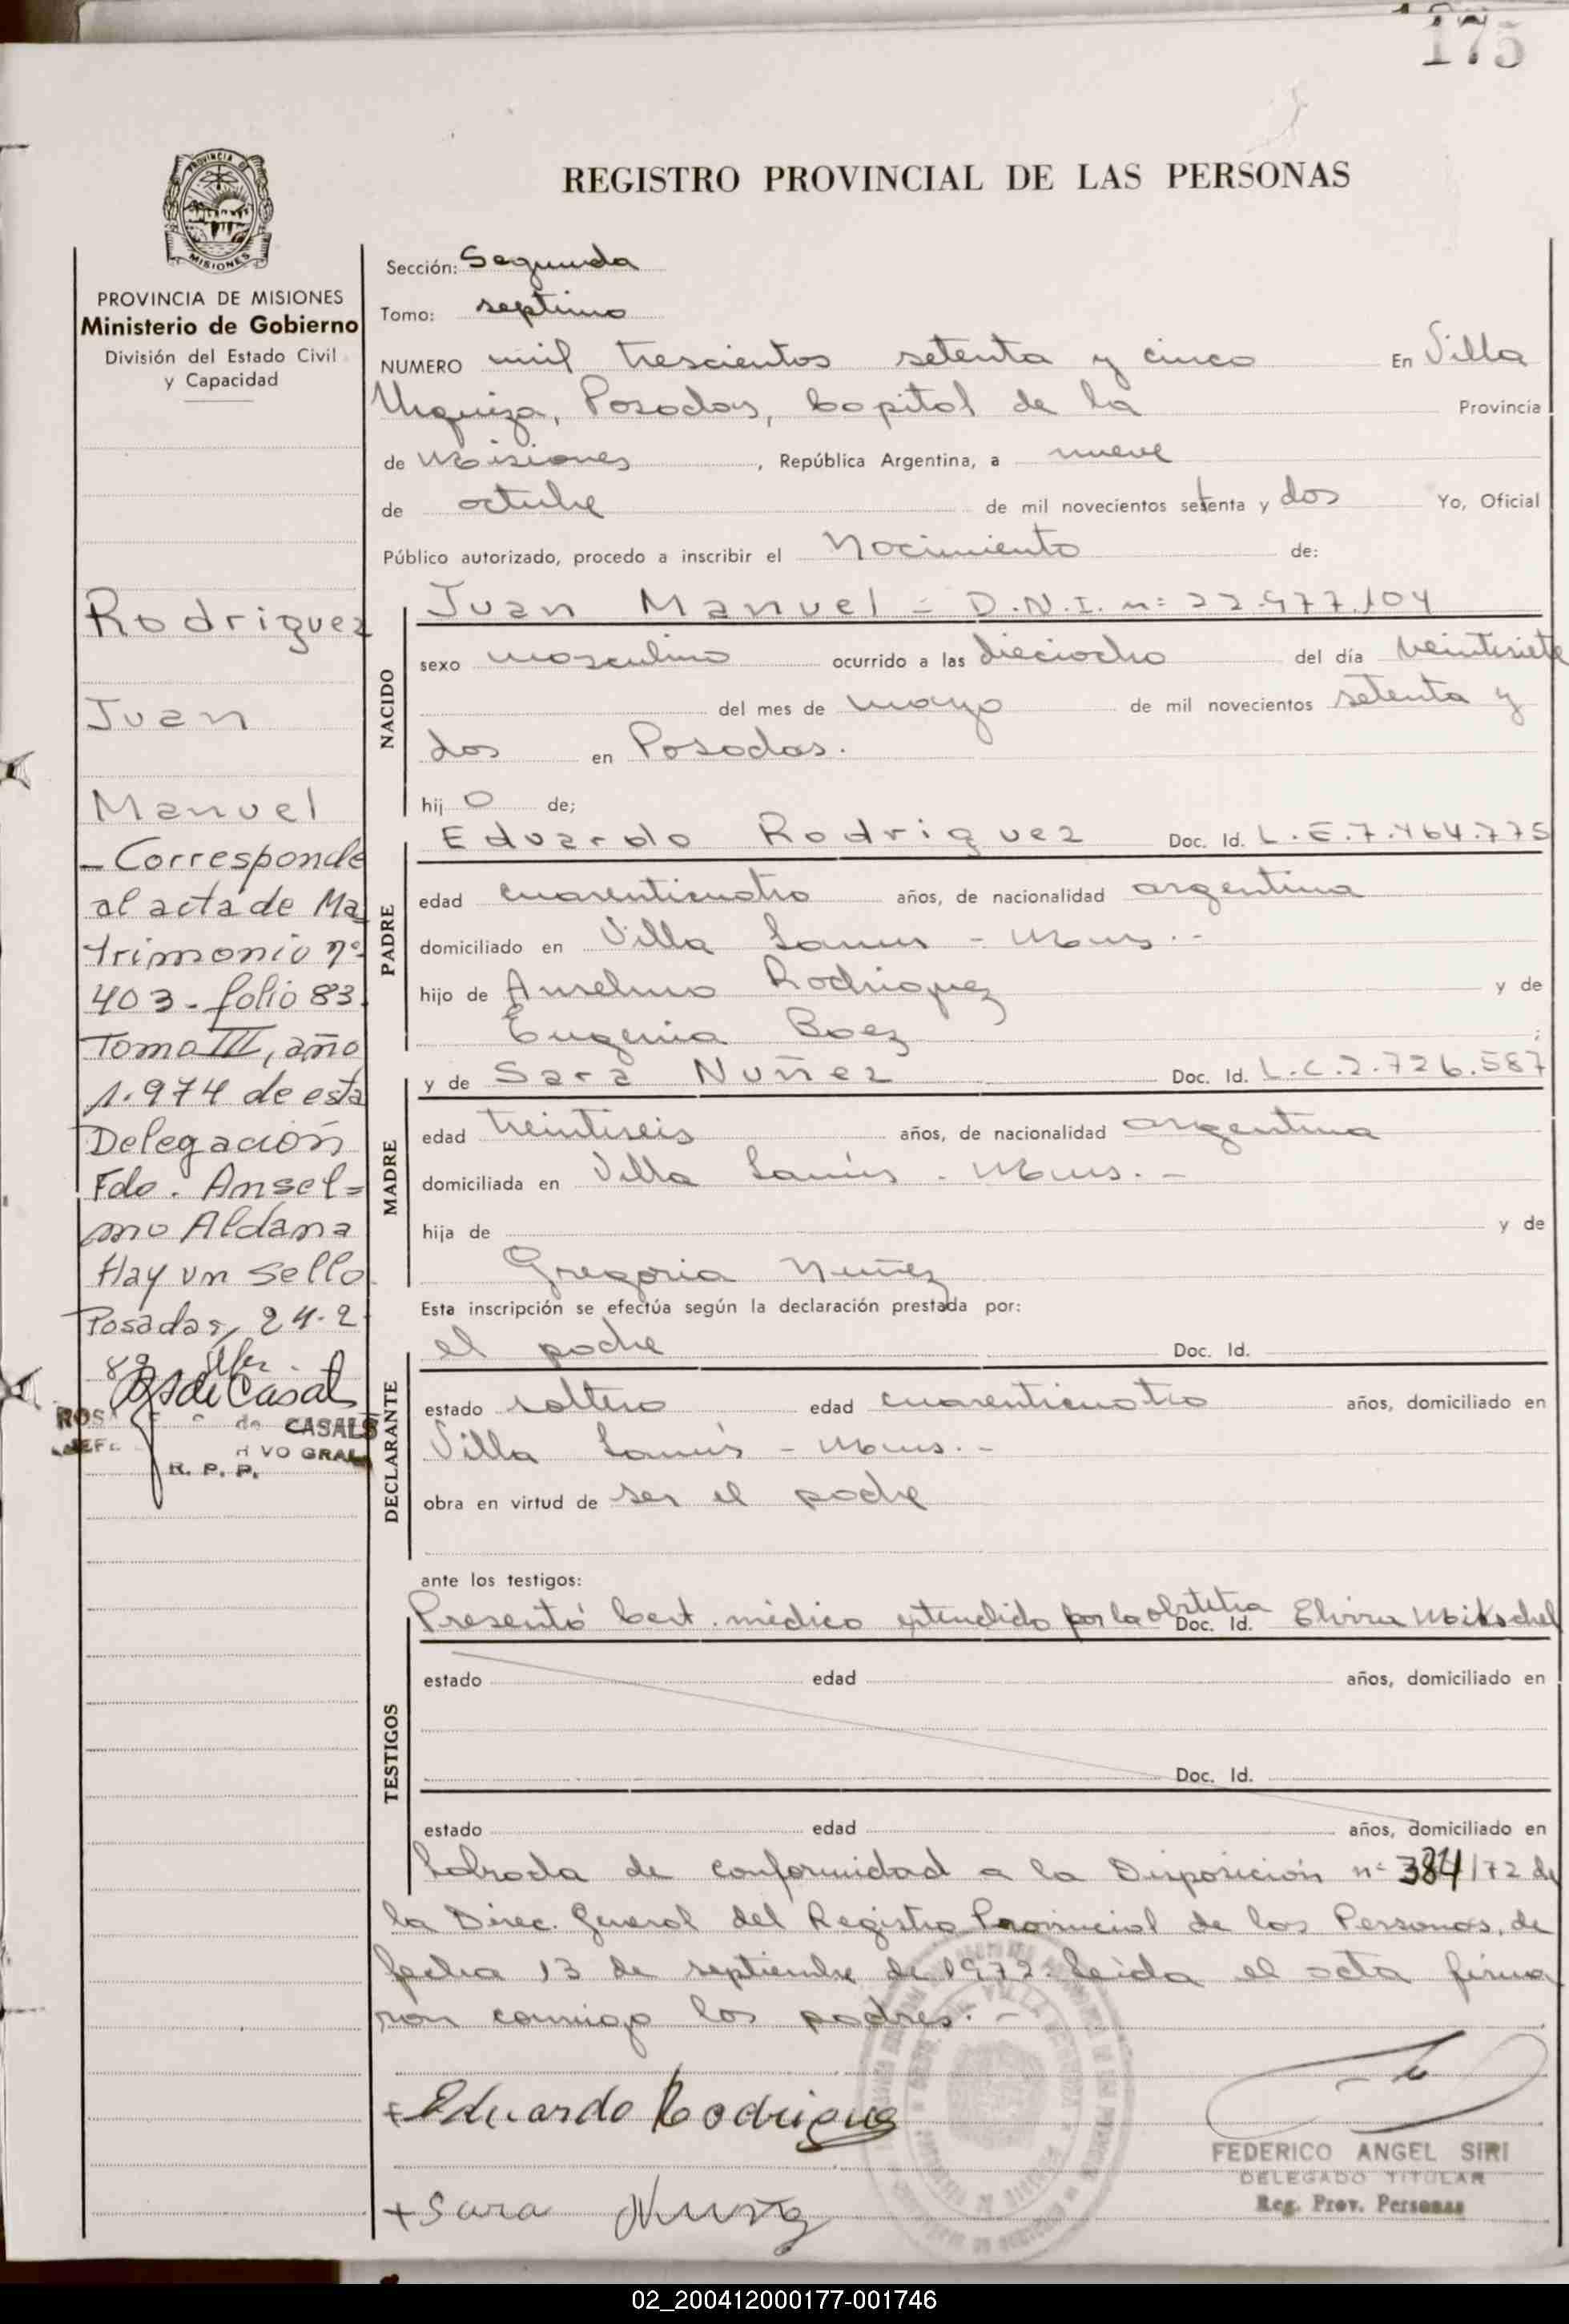 175
REGISTRO PROVINCIAL DE LAS PERSONAS
PROVINCIA DE
MISIONES
PROVINCIA DE MISIONES
Ministerio de Gobierno
División del Estado Civil
y Capacidad
Rodriguez
Juan
Manuel
- Corresponde
al acta de Ma
trimonio nº
403 - folio 83.
Tomo III, año
1.974 de esta
Delegación
Fdo. Ansel=
mo Aldana
Hay un sello.
Posadas, 24-2-
89
de Casals
ROSA de CASALS
JEFE VO GRAL
R. P. P.
Sección: Segunda
Tomo: septimo
NUMERO mil trescientos setenta y cinco En Villa
Urquiza, Posadas, Capital de la Provincia
de Misiones, República Argentina, a nueve
de octubre de mil novecientos setenta y dos Yo, Oficial
Público autorizado, procedo a inscribir el Nacimiento de:
NACIDO
Juan Manuel = D.N.I. nº 22.977.104
sexo masculino ocurrido a las dieciocho del día veintisiete
del mes de mayo de mil novecientos setenta y
dos en Posadas.
hij o de;
PADRE
Eduardo Rodriguez Doc. Id. L.E.7.464.775
edad cuarenticuatro años, de nacionalidad argentina
domiciliado en Villa Lanus - Mnes. -
hijo de Anselmo Rodriguez y de
Eugenia Baez ;
MADRE
y de Sara Nuñez Doc. Id. L.C.2.726.587
edad treintiseis años, de nacionalidad argentina
domiciliada en Villa Lanús - Mnes. -
hija de y de
Gregoria Nuñez
Esta inscripción se efectúa según la declaración prestada por:
DECLARANTE
el padre Doc. Id.
estado soltero edad cuarenticuatro años, domiciliado en
Villa Lanús - Mnes. -
obra en virtud de ser el padre
ante los testigos:
TESTIGOS
Presentó Cert. médico extendido por la obstetra Doc. Id. Elvira
estado edad años, domiciliado en
Doc. Id.
estado edad años, domiciliado en
Labrada de conformidad a la Disposición nº 384/72 de
la Direc. General del Registro Provincial de las Personas, de
fecha 13 de septiembre de 1972. Leida el acta firma
ron conmigo los padres. -
+ Eduardo Rodriguez
+ Sara Nuñez
FEDERICO ANGEL SIRI
DELEGADO TITULAR
Reg. Prov. Personas
02_200412000177-001746